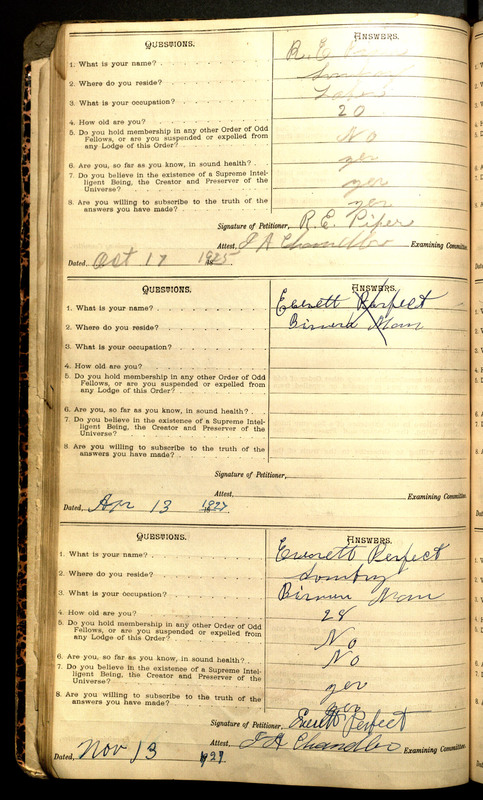 QUESTIONS. ANSWERS.
1. What is your name? R. E.
2. Where do you reside?
3. What is your occupation?
4. How old are you? 20
5. Do you hold membership in any other Order of Odd
Fellows, or are you suspended or expelled from
any Lodge of this Order? No
6. Are you, so far as you know, in sound health? yes
7. Do you believe in the existence of a Supreme Intel-
ligent Being, the Creator and Preserver of the
Universe? yes
8. Are you willing to subscribe to the truth of the
answers you have made? yes
Signature of Petitioner, R. E. Piper
Attest, J A Chandler Examining Committee.
Dated, Oct 17 1925
QUESTIONS. ANSWERS.
1. What is your name? Everett Perfect
2. Where do you reside?
3. What is your occupation?
4. How old are you?
5. Do you hold membership in any other Order of Odd
Fellows, or are you suspended or expelled from
any Lodge of this Order?
6. Are you, so far as you know, in sound health?
7. Do you believe in the existence of a Supreme Intel-
ligent Being, the Creator and Preserver of the
Universe?
8. Are you willing to subscribe to the truth of the
answers you have made?
Signature of Petitioner,
Attest, Examining Committee.
Dated, Apr 13 1927
QUESTIONS. ANSWERS.
1. What is your name? Everett Perfect
2. Where do you reside?
3. What is your occupation?
4. How old are you? 28
5. Do you hold membership in any other Order of Odd
Fellows, or are you suspended or expelled from
any Lodge of this Order? No
6. Are you, so far as you know, in sound health? No
7. Do you believe in the existence of a Supreme Intel-
ligent Being, the Creator and Preserver of the
Universe? yes
8. Are you willing to subscribe to the truth of the
answers you have made? yes
Signature of Petitioner, Everett Perfect
Attest, J A Chandler Examining Committee.
Dated, Nov 13 1927